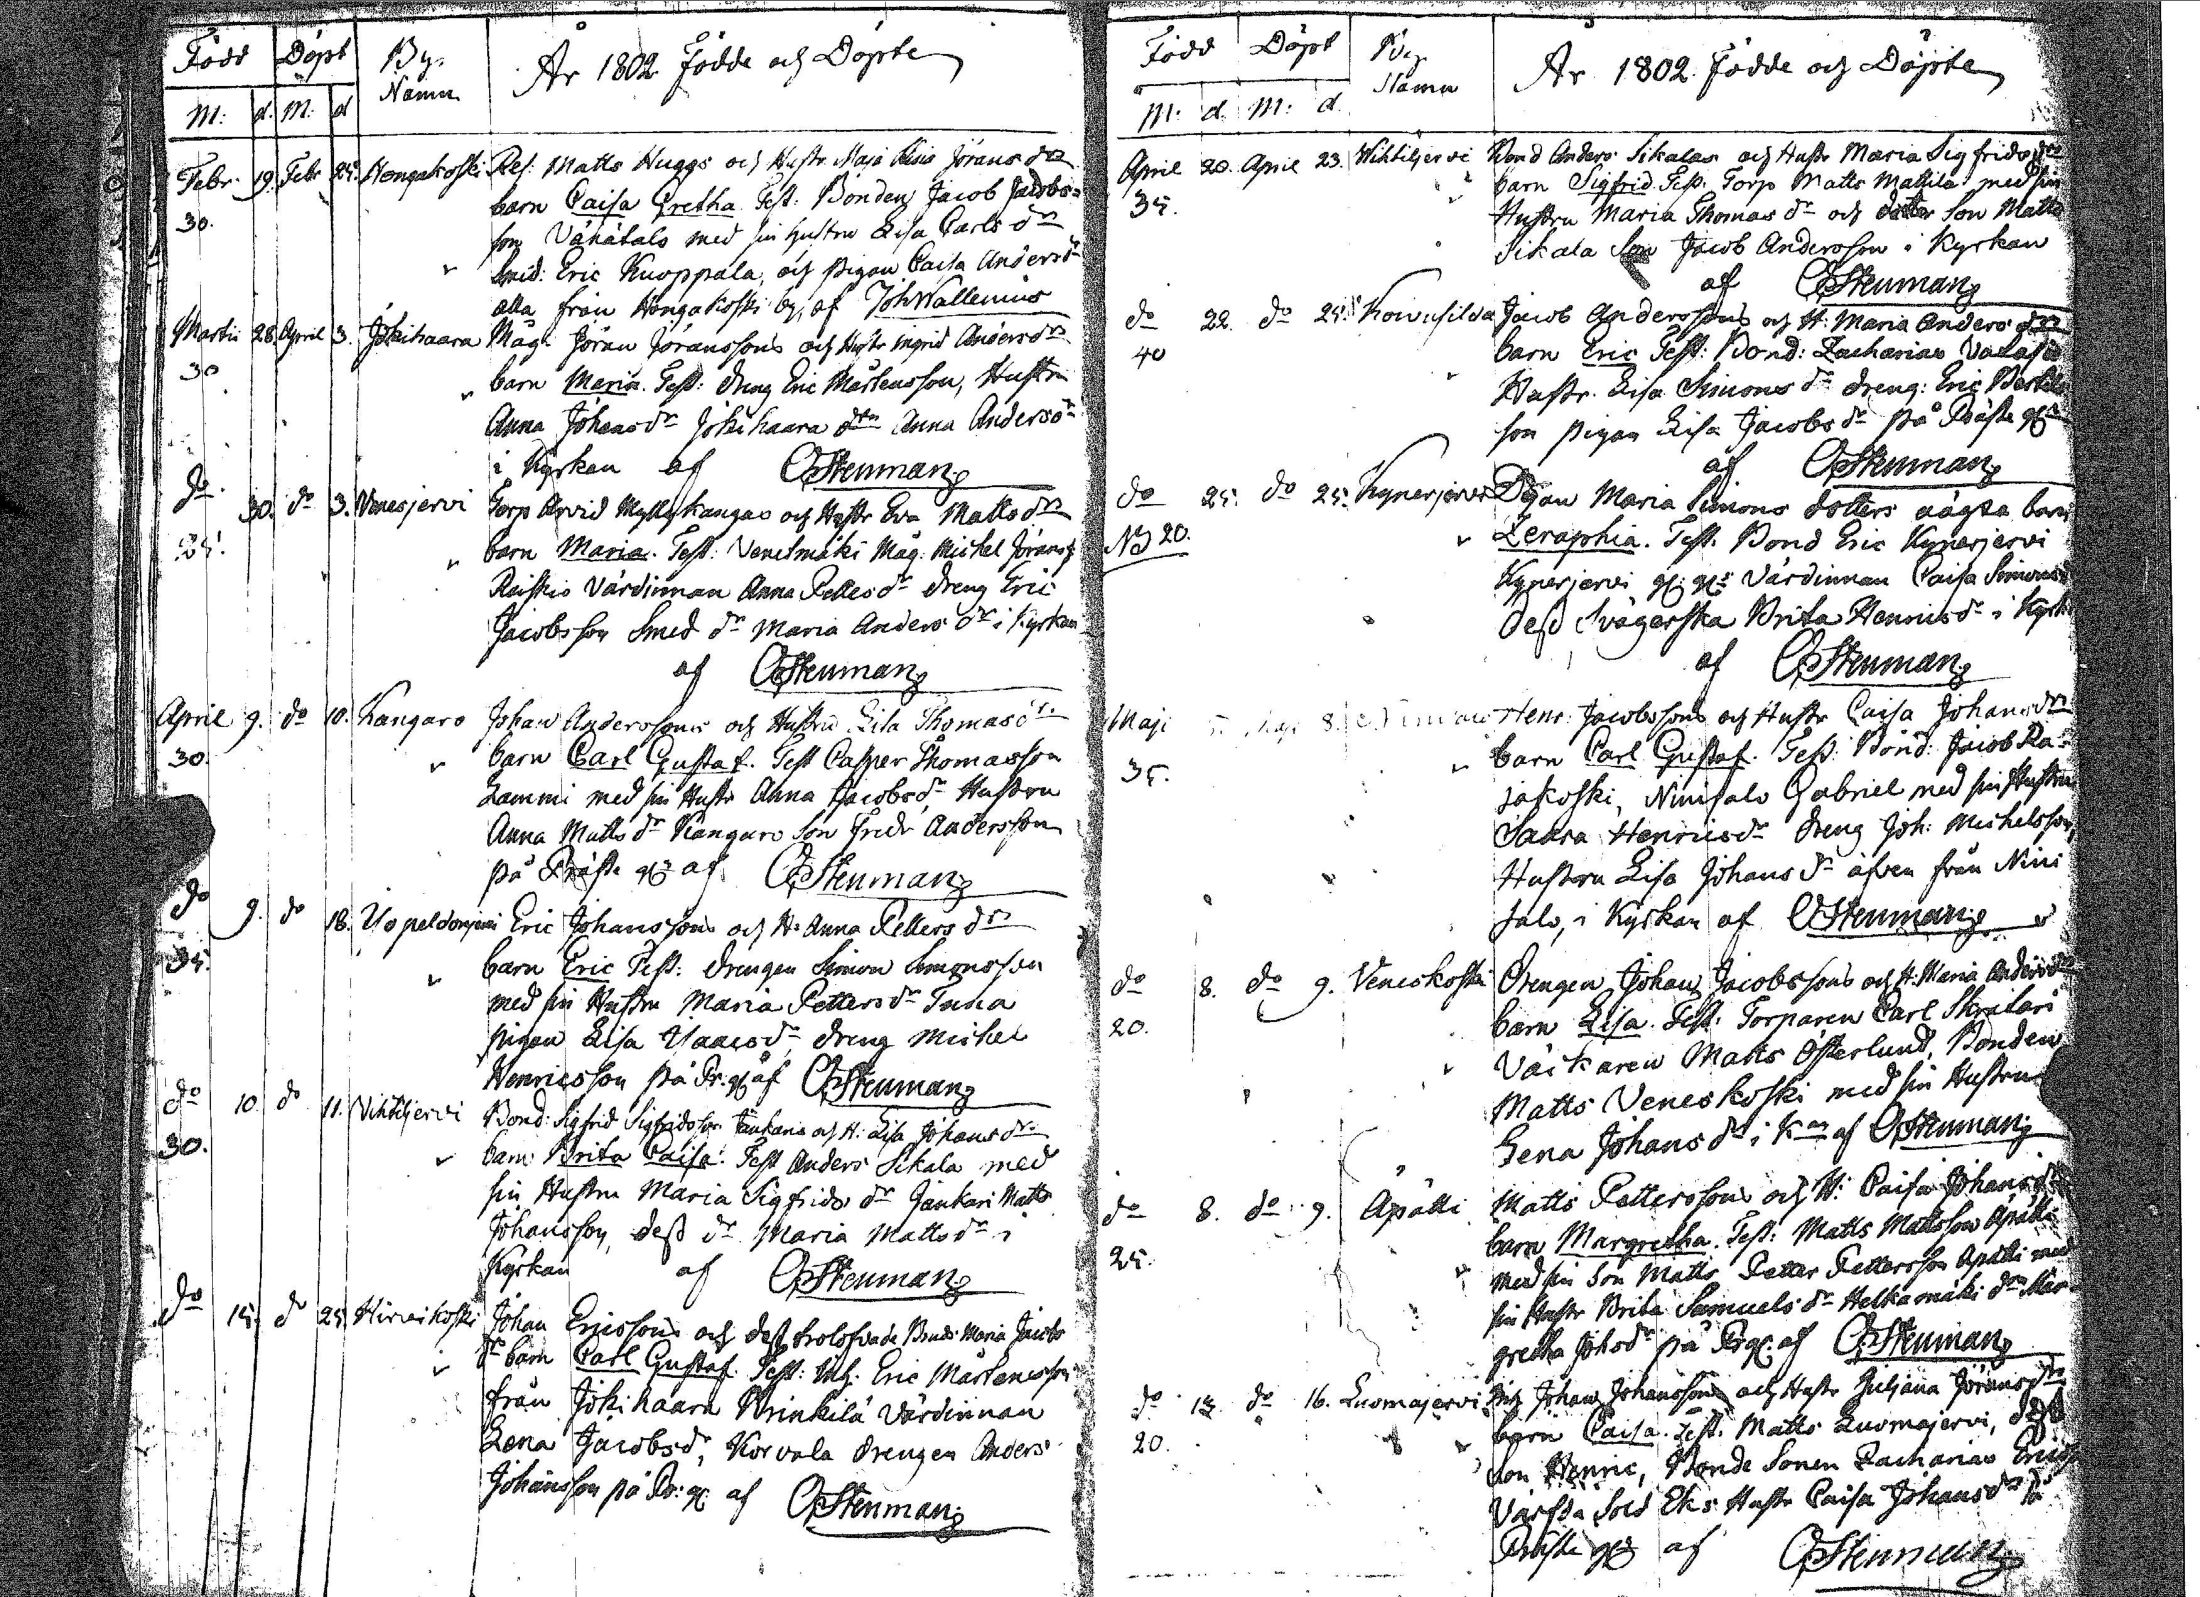 Född Döpt By. År 1802 Födde och Döpte
Namn
M: d. M: d
Febr. 19. Febr 25. Hongakoski Ref: Matts Huggs och Hustr Maja Lisa Jörans dr
30. barn Caisa Gretha. Test: Bonden Jacob Jacobs=
son Vähätalo med sin hustru Lisa Carls dr
Smid: Eric Kuoppala, och pigan Caisa Anders dr
alla från Hongakoski by, af Joh Wallenius
Martii 28. April 3. Jokihaara Måg. Jöran Jöranssons och Hustr Ingrid Anders dr
30 barn Maria. Test: dreng Eric Mårtensson, Hustru
Anna Johans dr Jokihaara dtrn Anna Anders dr
i Kyrkan af CStenman
do 30. do 3. Venesjervi Torp Arvid Myllykangas och Hustr Eva Matts dr
barn Maria. Test: Venetmäki Måg. Michel Jöranss
Raiskio Värdinnan Anna Pelles dr dreng Eric
Jacobsson Smed dr Maria Anders dr i Kyrkan
af CStenman
April 9. do 10. Kangaro Johan Anderssons och Hustru Lisa Thomas dr
30. barn Carl Gustaf. Test Casper Thomasson
Lammi med sin Hustr Anna Jacobs dr Hustru
Anna Matts dr Kangaro Son Fredr Andersson
på Präste gd af CStenman
do 9. do 18. Eric Johanssons och H. Anna Petters dr
35. barn Eric Test: drengen Simon Simonsson
med sin Hustru Maria Petters dr Tuna
pigan Lisa Isaacs dr dreng Michel
Henricsson på Pr. gd af CStenman
do 10. do 11. Vihtiljervi Bond: Sigfrid Sigfridsson Jankari och H: Lisa Johans dr
30. barn Brita Caisa. Test Anders Sikala med
sin Hustru Maria Sigfrids dr Jankari Matts
Johansson, dess dr Maria Matts dr i
Kyrkan af CStenman
do 15. do 25. Hirvikoski Johan Ericssons och dess trolofvade Brud Maria Jacobs
dr barn Carl Gustaf. Test: Eric Mårtensson
från Jokihaara Brinkilä Värdinnan
Lena Jacobs dr, Korvala drengen Anders
Johansson på Pr: gd. af CStenman
Född Döpt By År 1802. Födde och Döpte
Namn
M: d. M: d.
April 20. April 23. Wihtiljervi Bond Anders Sikalas och Hustr Maria Sigfrids dr
35. barn Sigfrid Test: Torp Matts Mattila med sin
Hustru Maria Thomas dr och Son Matts
Sikala Son Jacob Andersson i Kyrkan
af CStenman
do 22. do 25. Koivusilda Jacob Anderssons och H: Maria Anders dr
40 barn Eric Test: Bond: Zacharias
Hustr. Lisa Simons dr dreng: Eric Bertils
son pigan Lisa Jacobs dr på Präste gd
af CStenman
do 25. do 25. Kynerjervi Pigan Maria Simons dotters oägta barn
NB 20. Zeraphia. Test. Bond Eric Kynerjervi
Kynerjervi Värdinnan Caisa Simons dr
Dess Svägerska Brita Henrics dr i Kyrk
af CStenman
Maji 5. Maji 8. Henr: Jacobssons och Hustr Caisa Johans dr
35. barn Carl Gustaf. Test: Bond: Jacob Ra=
jakoski, Ninisalo Gabriel med sin Hustru
Saara Henrics dr dreng Joh: Michelsson,
Hustru Lisa Johans dr äfven från Nini
salo, i Kyrkan af CStenman
do 8. do 9. Veneskoski Drengen Johan Jacobssons och H. Maria Anders dr
20. barn Lisa. Test: Torparen Carl Skratari
Matts Österlund, Bonden
Matts Veneskoski med sin Hustru
Lena Johans dr i K an af CStenman
do 8. do 9. Äpätti Matts Petterssons och H: Caisa Johans dr
25. barn Margretha. Test: Matts Mattsson Äpätti
med sin Son Matts, Petter Pettersson Äpätti med
sin Hustr Brita Samuels dr Helkamäki dtrn Mar=
gretha Johs dr på Pr gd. af CStenman
do 13. do 16. Luomajervi Johan Johanssons och Hustr Juliana Jörans dr
20. barn Caisa. Test. Matts Luomajervi, dess
Son Henric, Bonde Sonen Zacharias Ericss
Sold Eks Hustr Caisa Johans dr på
Präste gd af CStenman